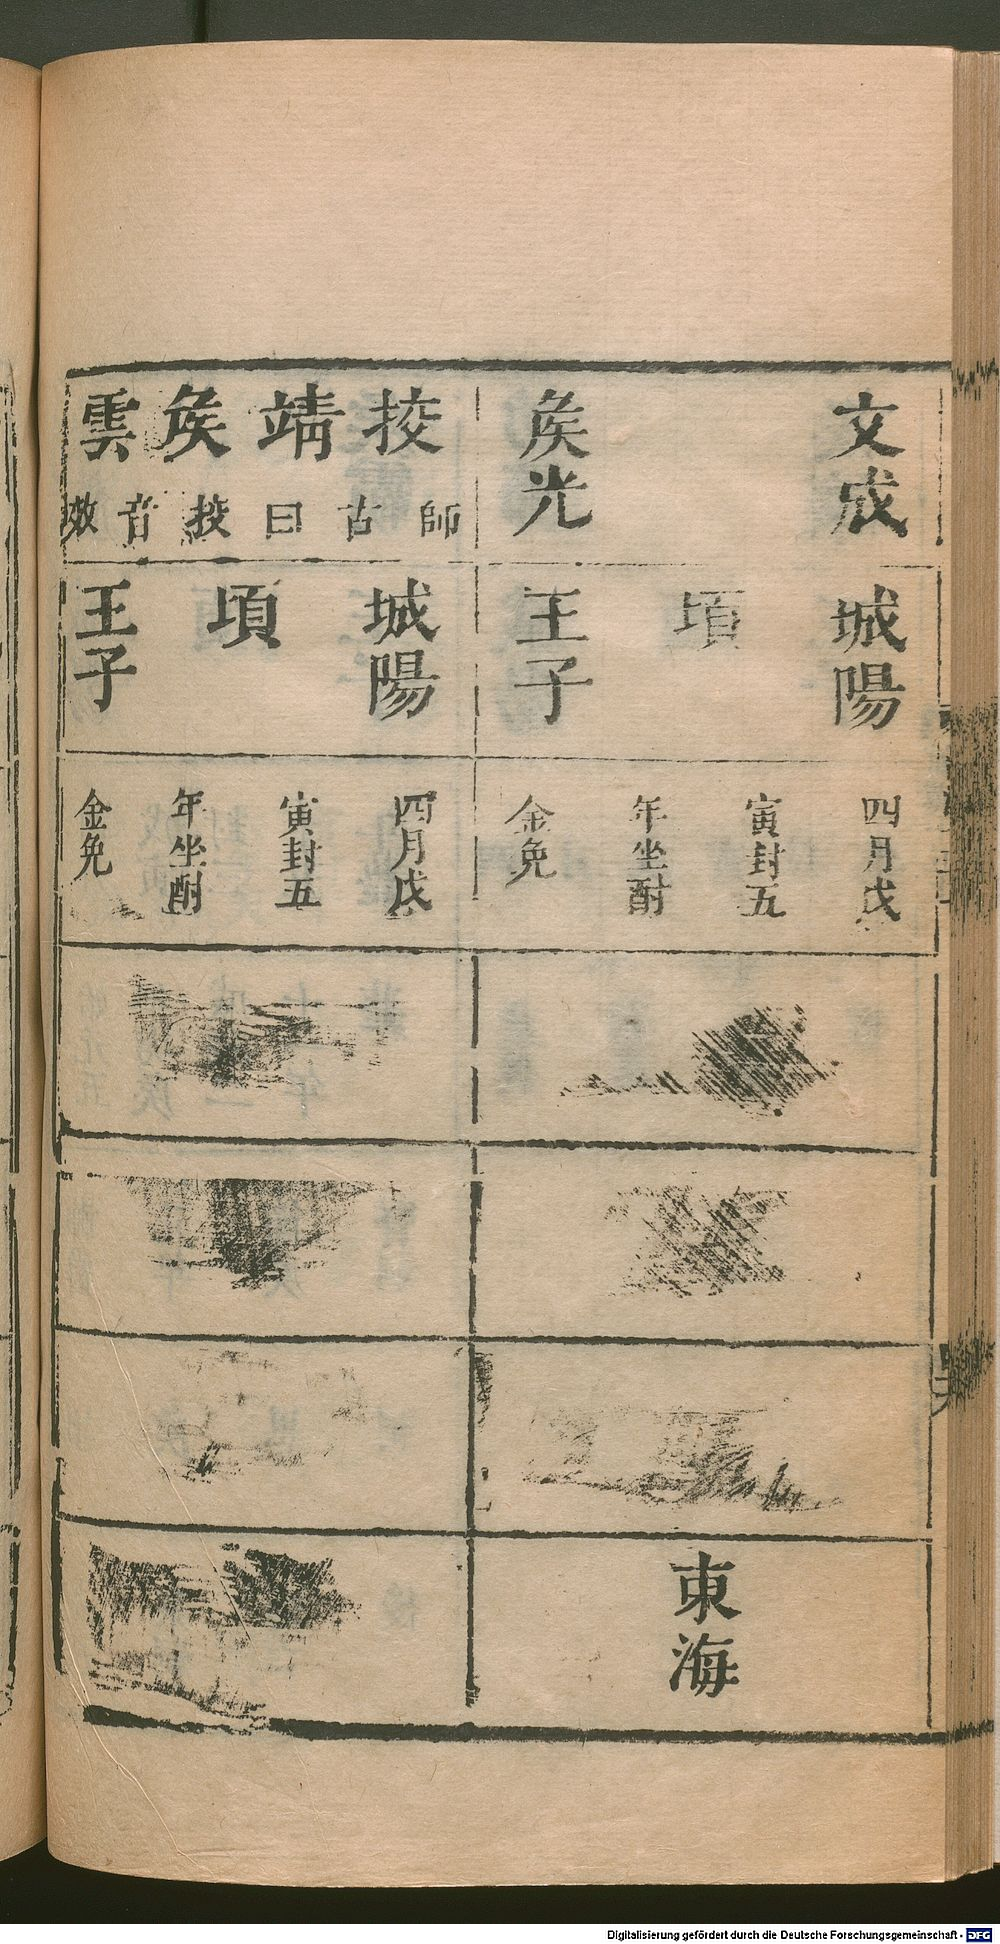 文成
矦光
城陽
頃
王子
四月戊
寅封五
年坐酎
金免
東海
挍
靖
矦
雲
師
古
曰
挍
音
效
城陽
頃
王子
四月戊
寅封五
年坐酎
金免
Digitalisierung gefördert durch die Deutsche Forschungsgemeinschaft - DFG